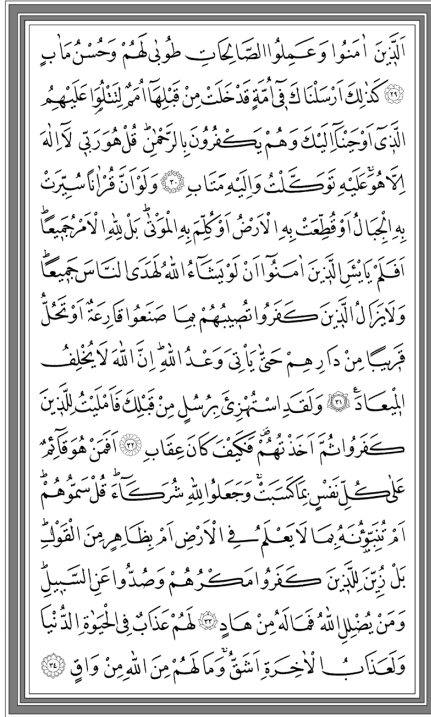 اَلَّذ۪ينَ اٰمَنُوا وَعَمِلُوا الصَّالِحَاتِ طُوبٰى لَهُمْ وَحُسْنُ مَاٰبٍ
﴿٢٩﴾ كَذٰلِكَ اَرْسَلْنَاكَ ف۪ٓي اُمَّةٍ قَدْ خَلَتْ مِنْ قَبْلِهَٓا اُمَمٌ لِتَتْلُوَ۬ا عَلَيْهِمُ
الَّذ۪ٓي اَوْحَيْنَٓا اِلَيْكَ وَهُمْ يَكْفُرُونَ بِالرَّحْمٰنِۜ قُلْ هُوَ رَبّ۪ي لَٓا اِلٰهَ
اِلَّا هُوَۚ عَلَيْهِ تَوَكَّلْتُ وَاِلَيْهِ مَتَابِ ﴿٣٠﴾ وَلَوْ اَنَّ قُرْاٰنًا سُيِّرَتْ
بِهِ الْجِبَالُ اَوْ قُطِّعَتْ بِهِ الْاَرْضُ اَوْ كُلِّمَ بِهِ الْمَوْتٰىۜ بَلْ لِلّٰهِ الْاَمْرُ جَم۪يعًاۜ
اَفَلَمْ يَا۬يْـَٔسِ الَّذ۪ينَ اٰمَنُٓوا اَنْ لَوْ يَشَٓاءُ اللّٰهُ لَهَدَى النَّاسَ جَم۪يعًاۜ
وَلَا يَزَالُ الَّذ۪ينَ كَفَرُوا تُص۪يبُهُمْ بِمَا صَنَعُوا قَارِعَةٌ اَوْ تَحُلُّ
قَر۪يبًا مِنْ دَارِهِمْ حَتّٰى يَأْتِيَ وَعْدُ اللّٰهِۜ اِنَّ اللّٰهَ لَا يُخْلِفُ
الْم۪يعَادَ۟ ﴿٣١﴾ وَلَقَدِ اسْتُهْزِئَ بِرُسُلٍ مِنْ قَبْلِكَ فَاَمْلَيْتُ لِلَّذ۪ينَ
كَفَرُوا ثُمَّ اَخَذْتُهُمْ۠ فَكَيْفَ كَانَ عِقَابِ ﴿٣٢﴾ اَفَمَنْ هُوَ قَٓائِمٌ
عَلٰى كُلِّ نَفْسٍ بِمَا كَسَبَتْۚ وَجَعَلُوا لِلّٰهِ شُرَكَٓاءَۜ قُلْ سَمُّوهُمْۜ
اَمْ تُنَبِّؤُ۫نَهُ بِمَا لَا يَعْلَمُ فِي الْاَرْضِ اَمْ بِظَاهِرٍ مِنَ الْقَوْلِۜ
بَلْ زُيِّنَ لِلَّذ۪ينَ كَفَرُوا مَكْرُهُمْ وَصُدُّوا عَنِ السَّب۪يلِۜ
وَمَنْ يُضْلِلِ اللّٰهُ فَمَا لَهُ مِنْ هَادٍ ﴿٣٣﴾ لَهُمْ عَذَابٌ فِي الْحَيٰوةِ الدُّنْيَا
وَلَعَذَابُ الْاٰخِرَةِ اَشَقُّۚ وَمَا لَهُمْ مِنَ اللّٰهِ مِنْ وَاقٍ ﴿٣٤﴾